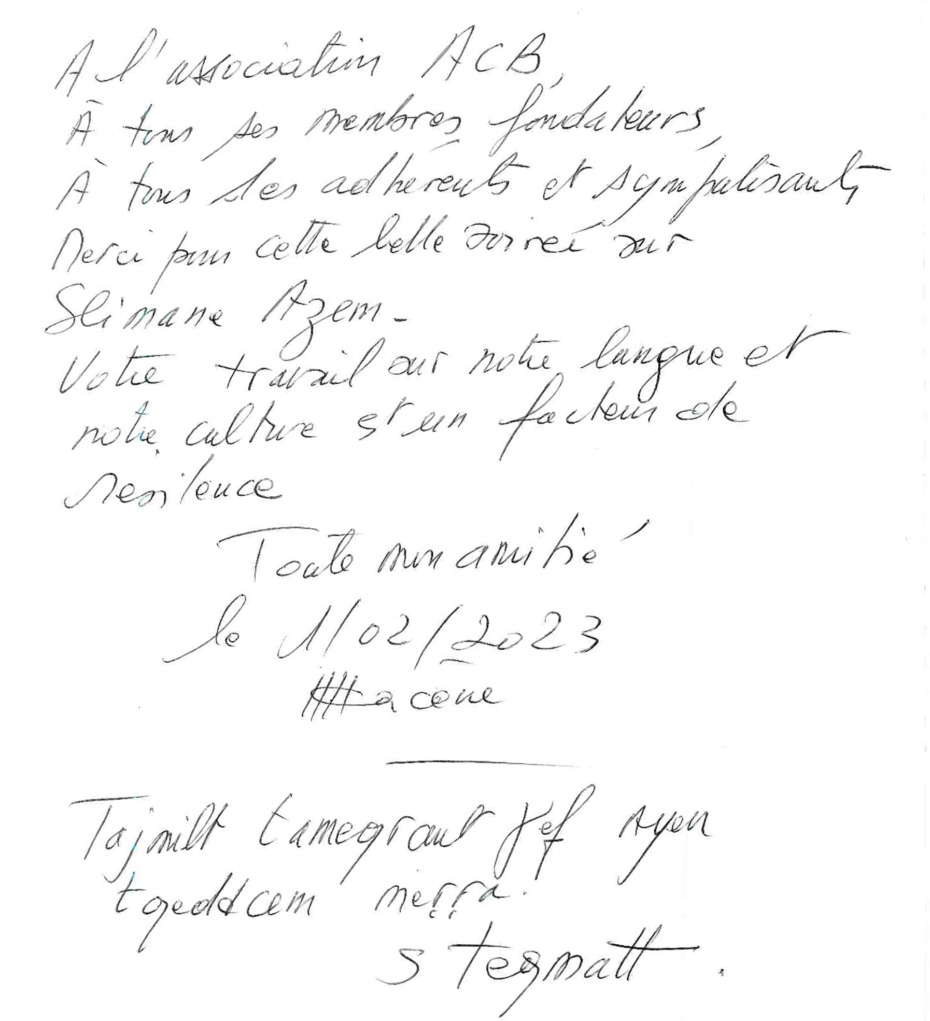 A l'association ACB,
À tous ses membres fondateurs,
À tous ses adhérents et sympatisants,
Merci pour cette belle soirée sur
Slimane Azem.
Votre travail sur notre langue et
notre culture est un facteur de
resilence
Toute mon amitié
le 1/02/2023
Tajmilt tameqrant ɣef ayen
meṛṛa.
s tegmatt.